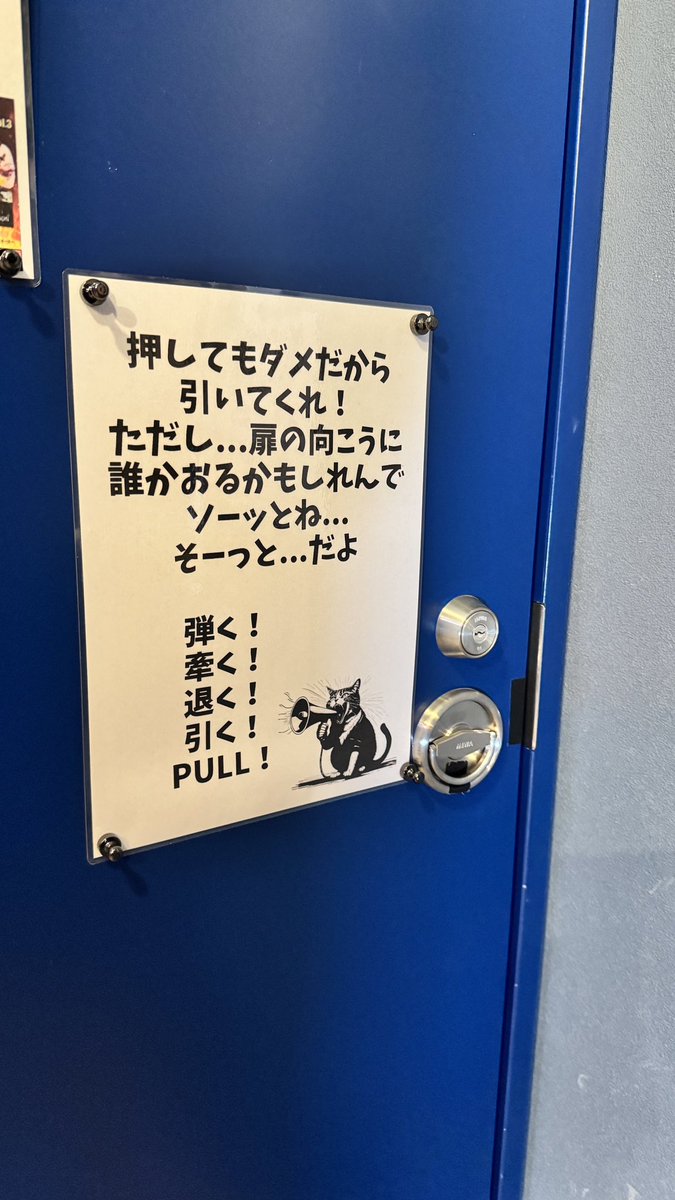 押してもダメだから
引いてくれ！
ただし...扉の向こうに
誰かおるかもしれんで
ソーッとね...
そーっと...だよ
弾く！
牽く！
退く！
引く！
PULL！